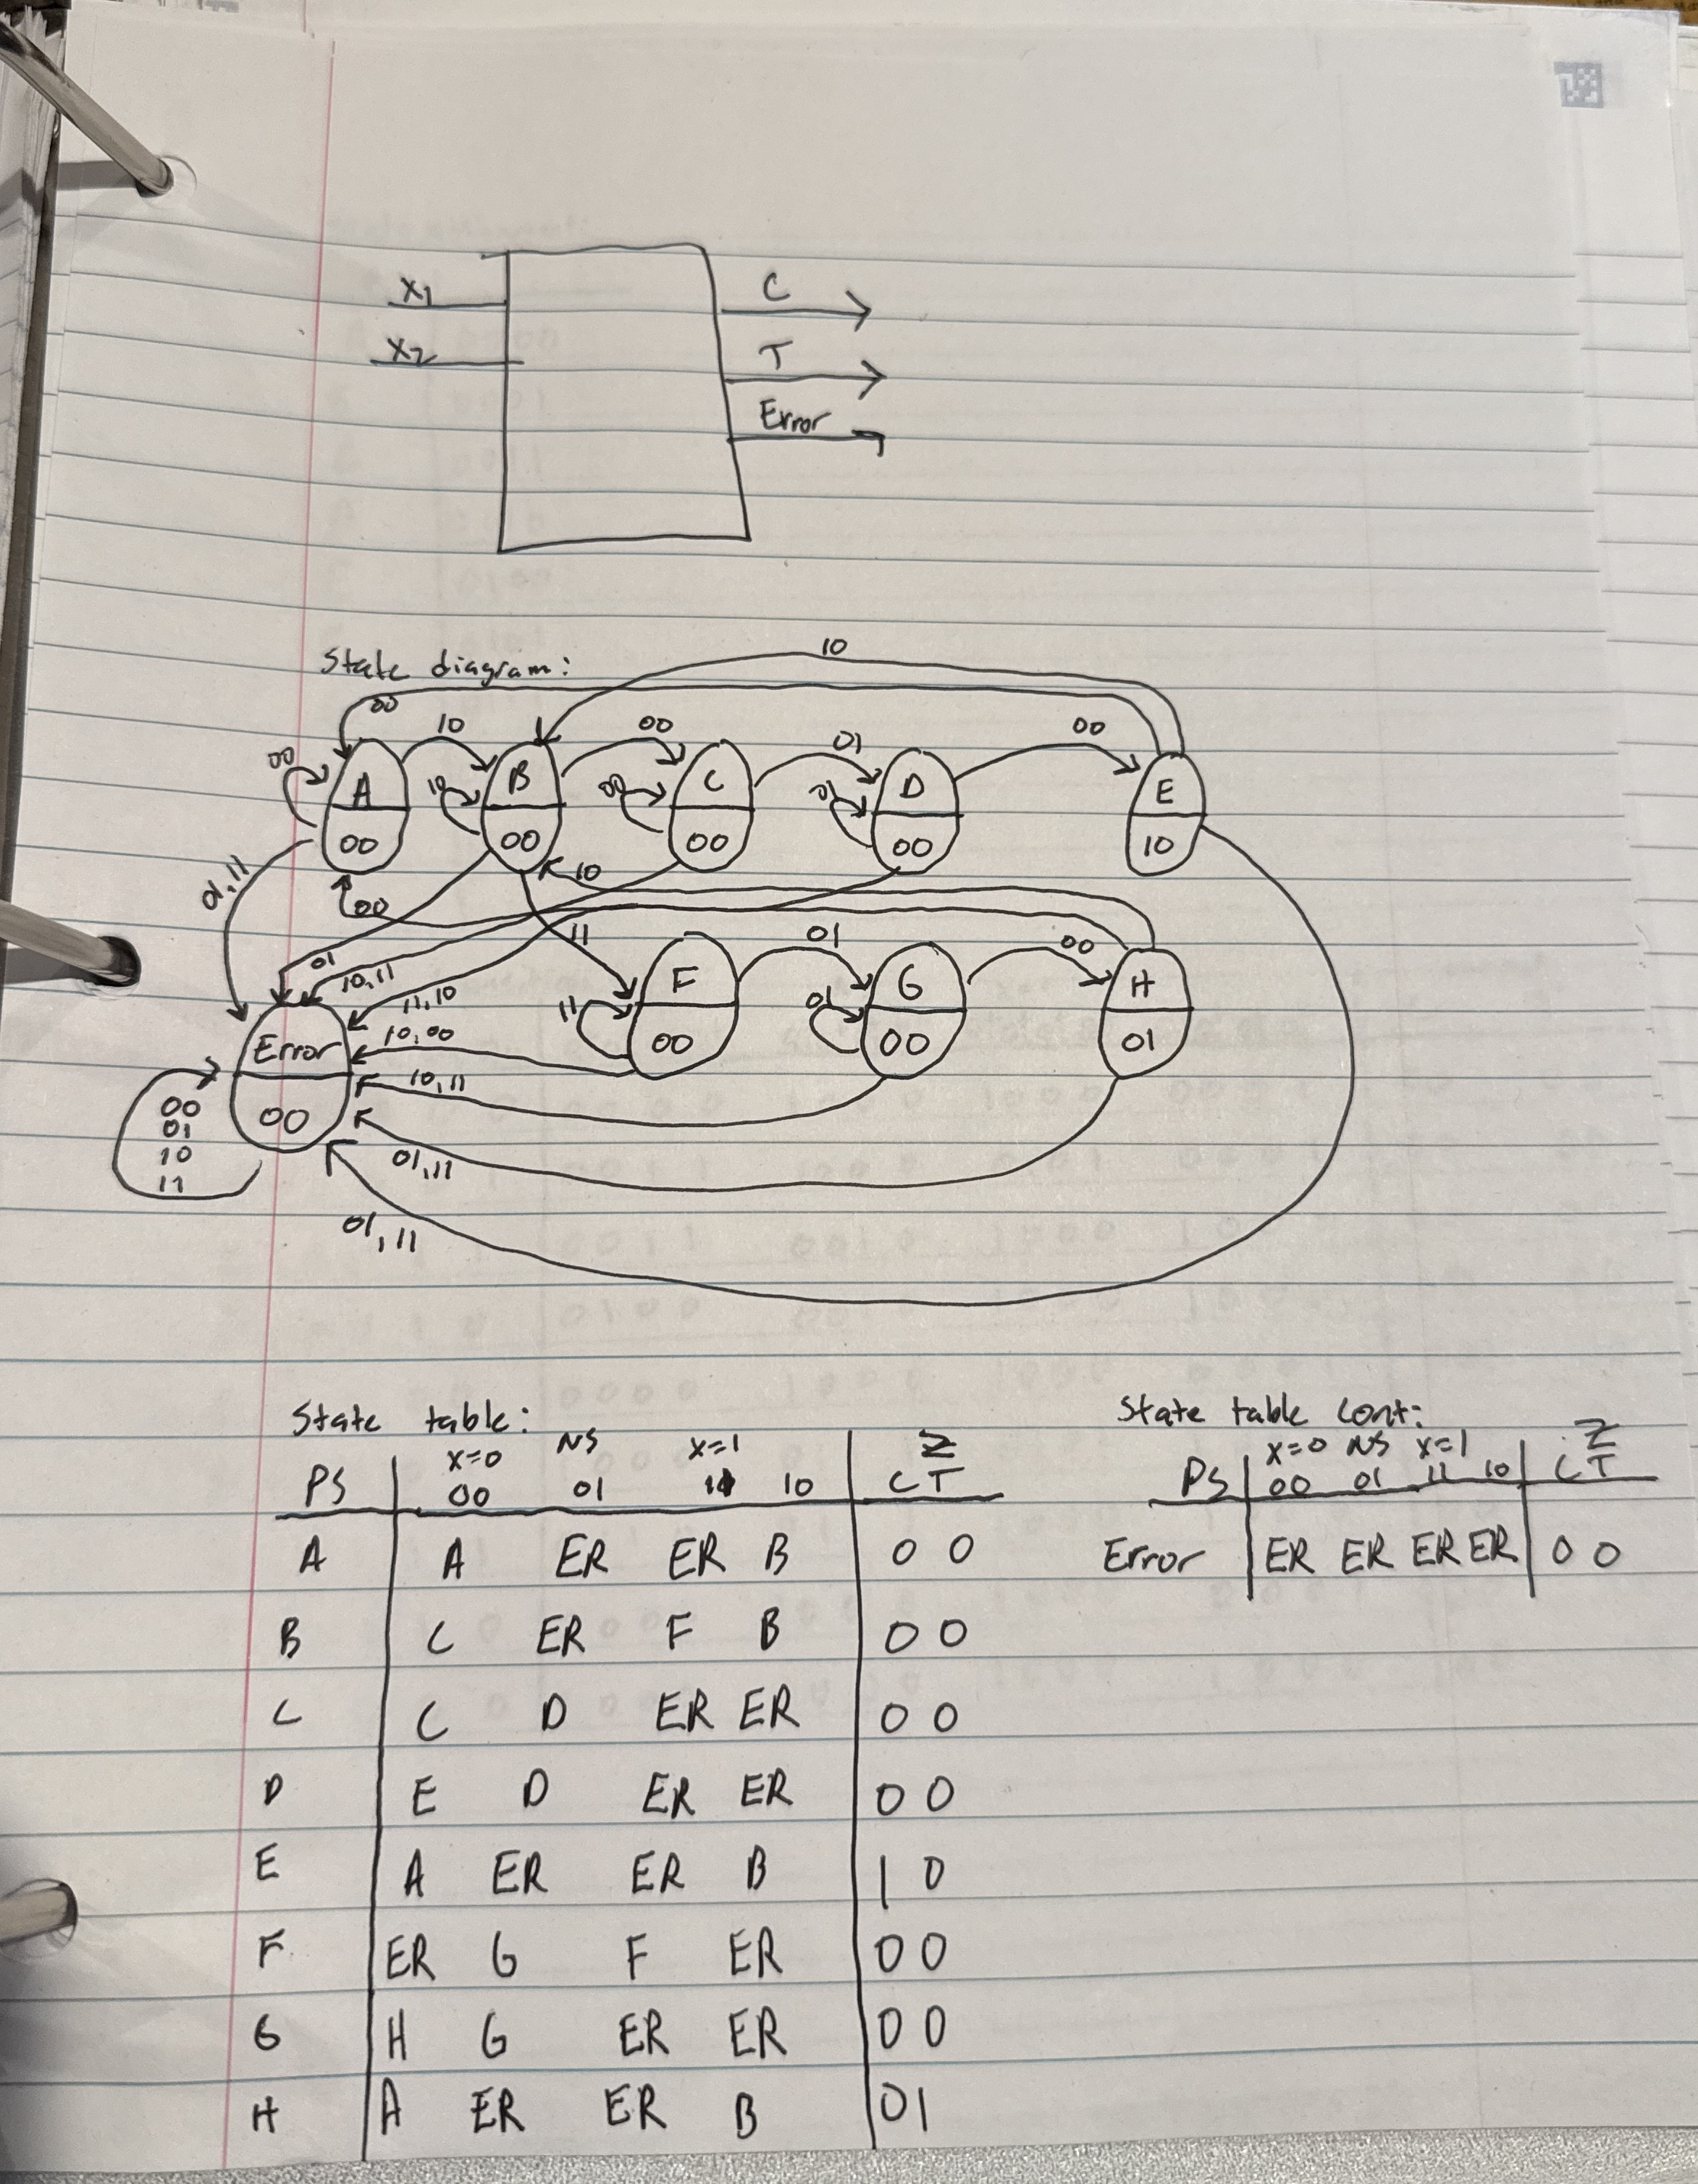 X1
C
X2
T
Error
State diagram:
10
00
10 00 01 00
00 A 10 B 00 C 01 D E
00 00 00 00 10
01,11
00 10
11 01 00
01 10,11 11,10
F G H
11 01
Error 10,00 00 00 01
10,11
00 00
01
10 01,11
11
01,11
State table: State table cont:
x=0 NS x=1 Z x=0 NS x=1 Z
PS 00 01 11 10 C T PS 00 01 11 10 C T
A A ER ER B 0 0 Error ER ER ER ER 0 0
B C ER F B 0 0
C C D ER ER 0 0
D E D ER ER 0 0
E A ER ER B 1 0
F ER G F ER 0 0
G H G ER ER 0 0
H A ER ER B 0 1